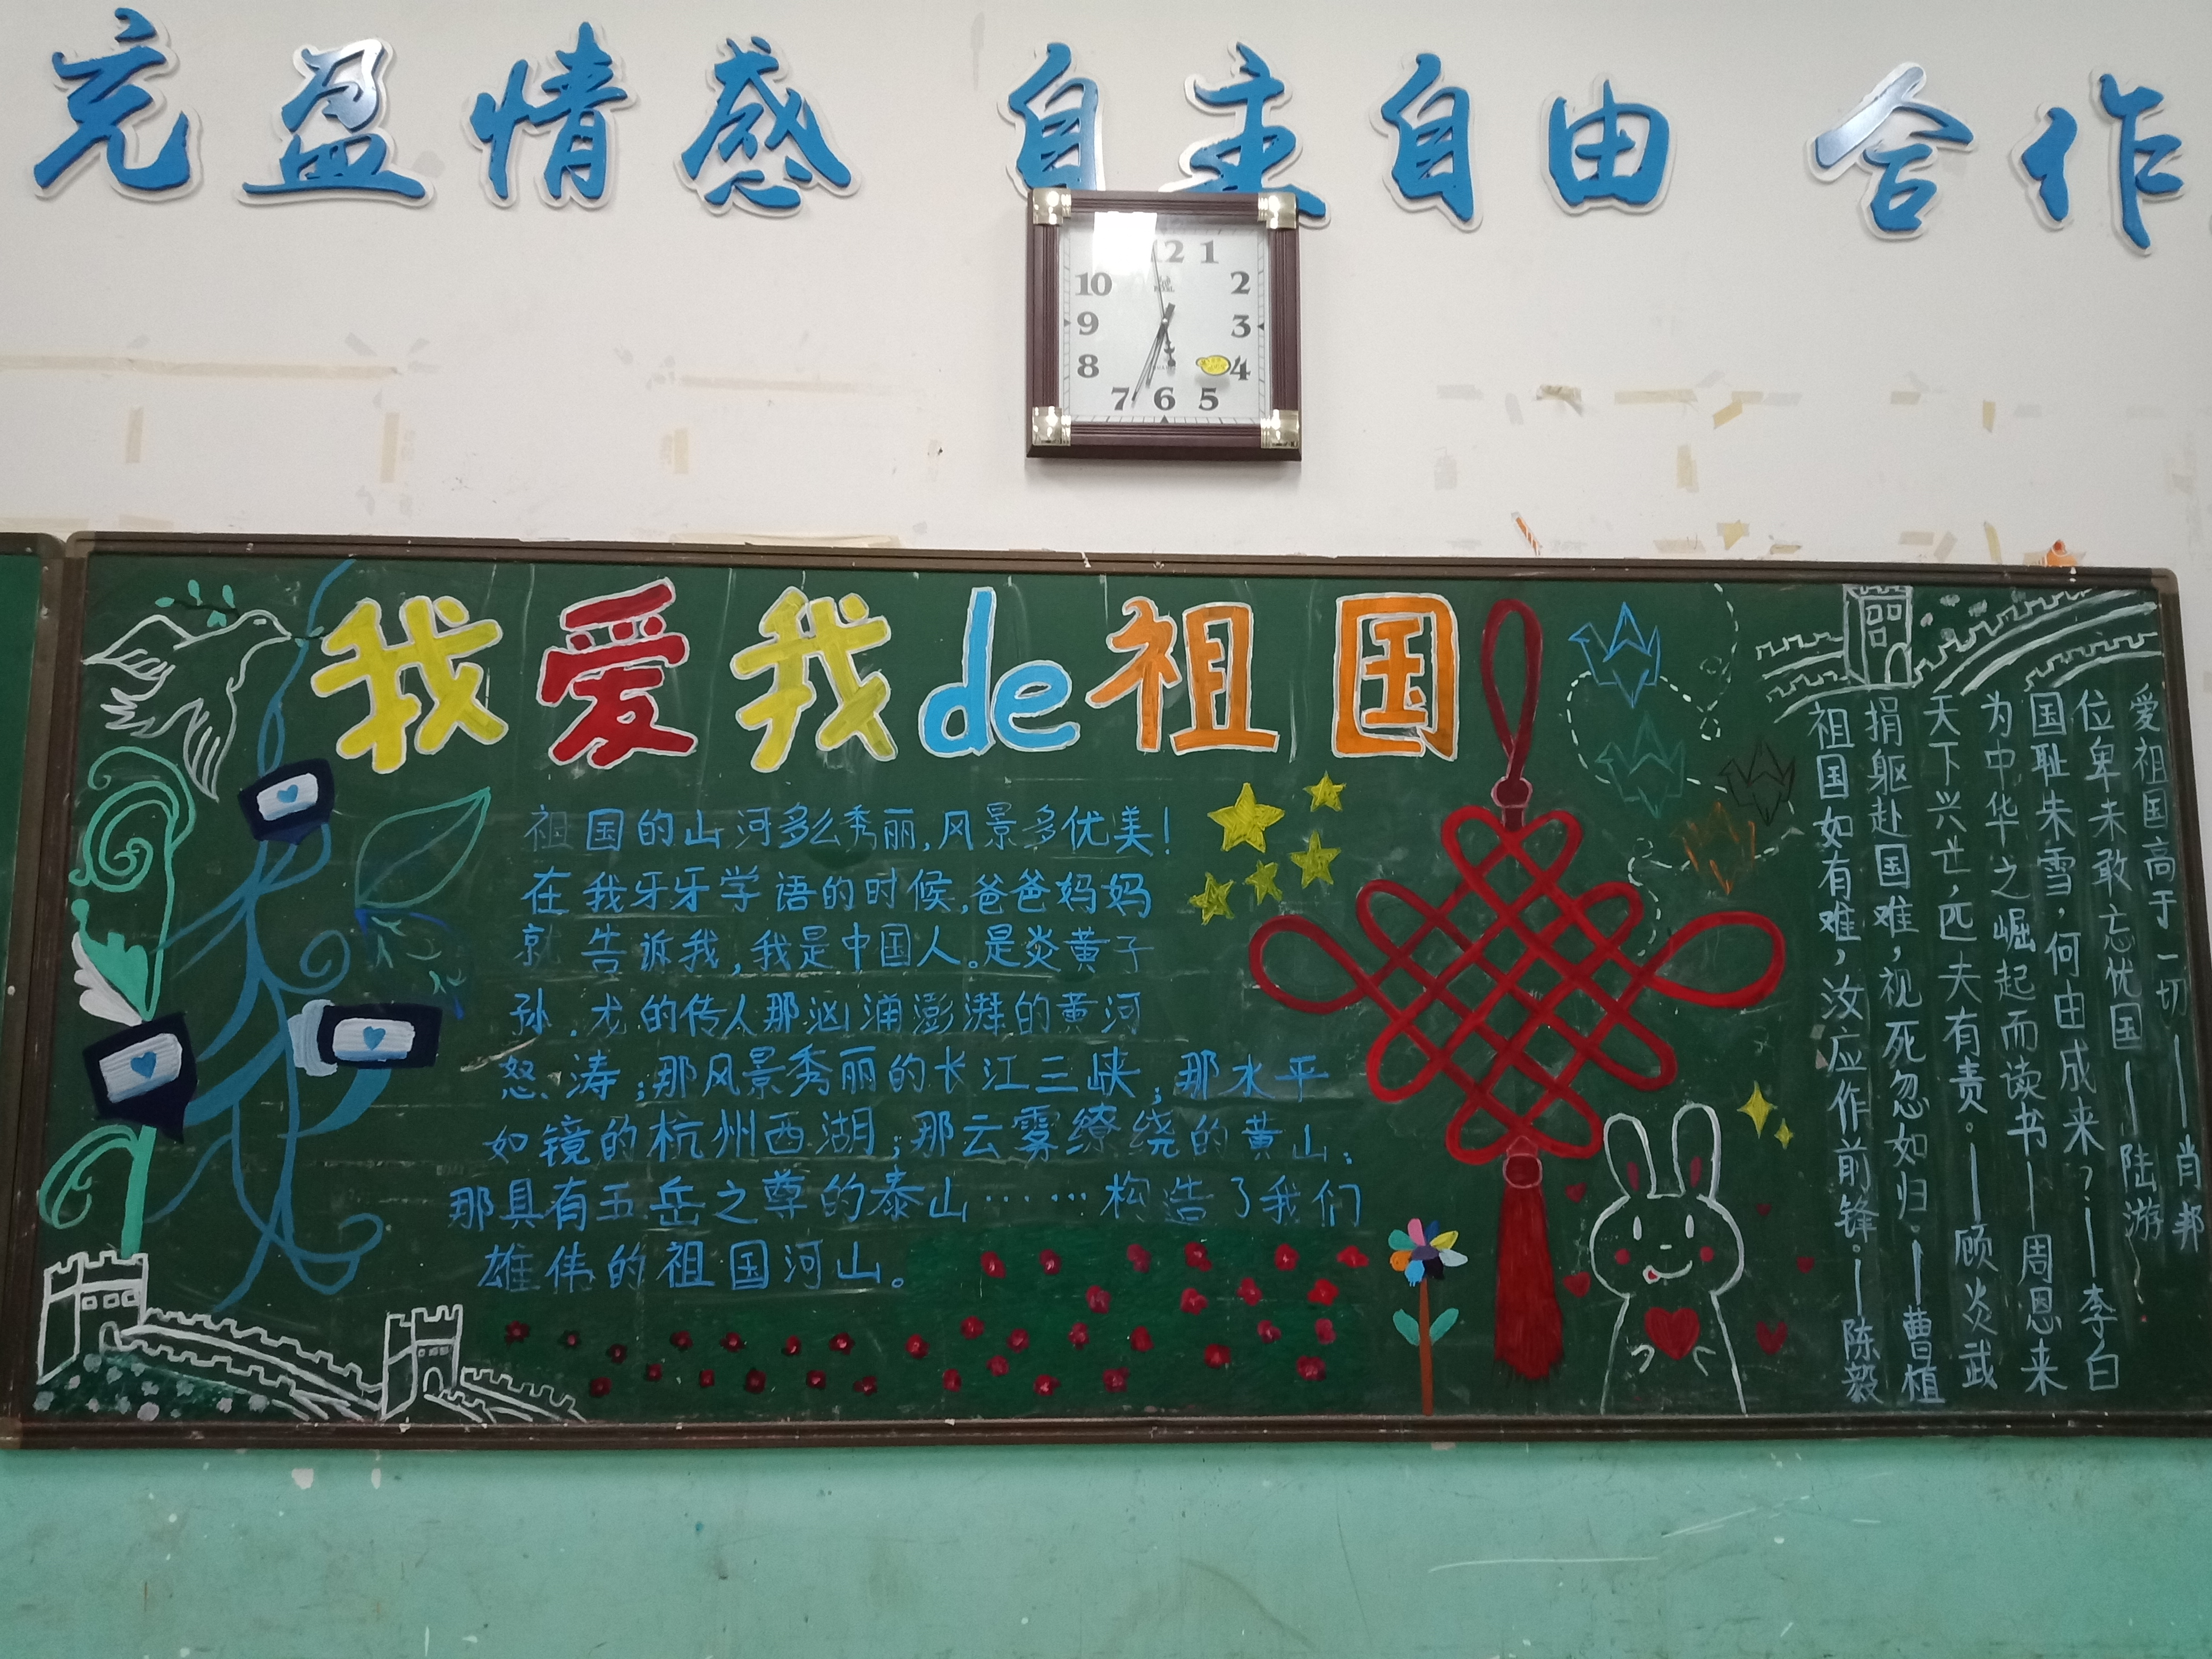 充盈情感 自主自由 合作
12 1
10 2
9 3
8 4
7 6 5
我爱我de祖国
祖国的山河多么秀丽,风景多优美!
在我牙牙学语的时候,爸爸妈妈
就告诉我,我是中国人。是炎黄子
孙.龙的传人那汹涌澎湃的黄河
怒涛;那风景秀丽的长江三峡;那水平
如镜的杭州西湖;那云雾缭绕的黄山;
那具有五岳之尊的泰山……构造了我们
雄伟的祖国河山。
爱祖国高于一切——肖邦
位卑未敢忘忧国——陆游
国耻未雪,何由成来?——李白
为中华之崛起而读书——周恩来
天下兴亡,匹夫有责。——顾炎武
捐躯赴国难,视死忽如归。——曹植
祖国如有难,汝应作前锋.——陈毅